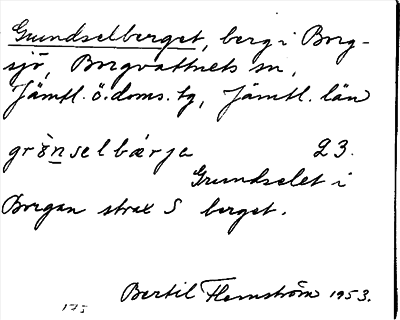 Grundselberget, berg i Borg-
sjö, Borgvattnets sn,
Jämtl. ö. doms. tg, Jämtl. län
grö̀nselbárja 23.
Grundselet i
Borgan strax S berget.
Bertil Flemström 1953.
175